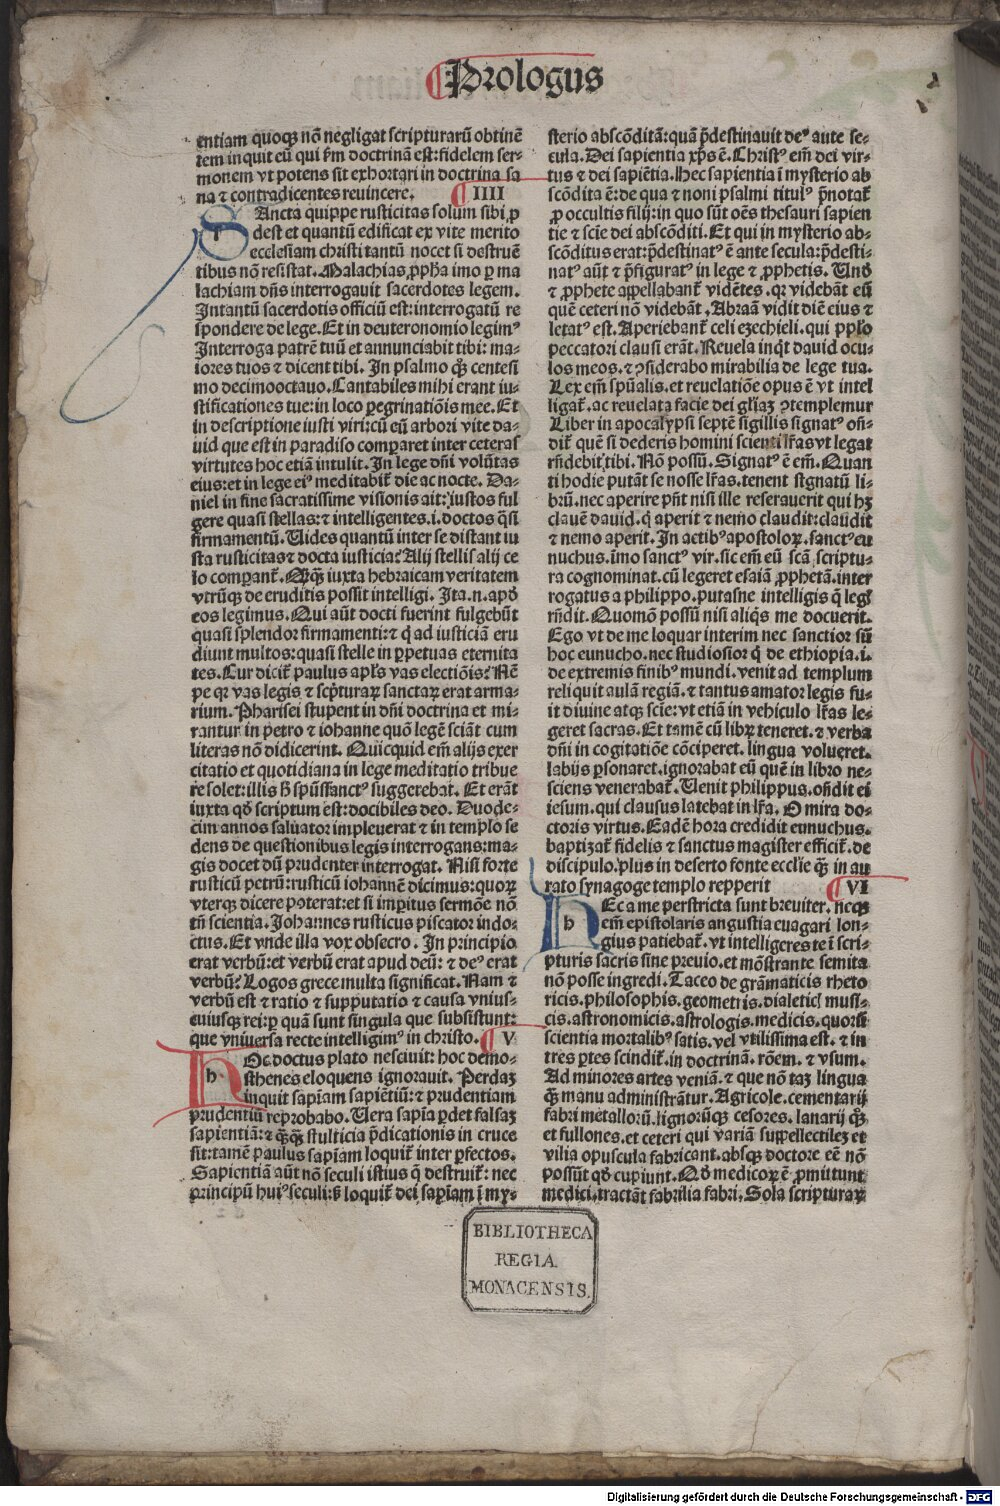 Prologus
entiam quoqꝫ nō negligat scripturarū obtinē
tem inquit eū qui ẜm doctrinā est: fidelem ser⸗
monem vt potens sit exhortari in doctrina sa
na ⁊ contradicentes reuincere.
IIII
SAncta quippe rusticitas solum sibi ꝓ
dest et quantū edificat ex vite merito
ecclesiam christi tantū nocet si destruē
tibus nō resistat. Malachias ꝓpħa imo ꝑ ma
lachiam dn̄s interrogauit sacerdotes legem.
Intantū sacerdotis officiū est: interrogatū re
spondere de lege. Et in deuteronomio legimꝰ
Interroga patrē tuū et annunciabit tibi: ma⸗
iores tuos ⁊ dicent tibi. In psalmo qꝫ̄ centesi
mo decimooctauo. Cantabiles mihi erant iu⸗
stificationes tue: in loco ꝑegrinatiōis mee. Et
in descriptione iusti viri: cū eū arbori vite da⸗
uid que est in paradiso comparet inter ceteras
virtutes hoc etiā intulit. In lege dn̄i volūtas
eius: et in lege eiꝰ meditabit̄ die ac nocte. Da⸗
niel in fine sacratissime visionis ait: iustos ful
gere quasi stellas: ⁊ intelligentes .i. doctos q̄si
firmamentū. Uides quantū inter se distant iu
sta rusticitas ⁊ docta iusticia? Alij stellis alij ce
lo comparant̄. Qꝗ̄ꝫ iuxta hebraicam veritatem
vtrūqꝫ de eruditis possit intelligi. Ita .n. apď
eos legimus. Qui aūt docti fuerint fulgebūt
quasi splendor firmamenti: ⁊ q̇ ad iusticiā eru
diunt multos: quasi stelle in ꝑpetuas eternita
tes. Cur dicit̄ paulus apl̄s vas electiōis? Nē
pe qꝛ vas legis ⁊ scp̄turaꝝ sanctaꝝ erat arma⸗
rium. Pharisei stupent in dn̄i doctrina et mi⸗
rantur in petro ⁊ iohanne quō legē sciāt cum
literas nō didicerint. Quicquid em̄ alijs exer
citatio et quotidiana in lege meditatio tribue
re solet: illis ħ spūssanctꝰ suggerebat. Et erāt
iuxta qď scriptum est: docibiles deo. Duode⸗
cim annos saluator impleuerat ⁊ in templo se
dens de questionibus legis interrogans: ma⸗
gis docet dū prudenter interrogat. Nisi forte
rusticū petrū: rusticū iohannē dicimus: quoꝝ
vterqꝫ dicere poterat: et si imꝑitus sermōe nō
tn̄ scientia. Johannes rusticus piscator indo⸗
ctus. Et vnde illa vox obsecro. In principio
erat verbū: et verbū erat apud deū: ⁊ deꝰ erat
verbū? Logos grece multa significat. Nam ⁊
verbū est ⁊ ratio ⁊ supputatio ⁊ causa vnius⸗
cuiusqꝫ rei: ꝑ quā sunt singula que subsistunt:
que vniuersa recte intelligimꝰ in christo.
V
HOc doctus plato nesciuit: hoc demo⸗
sthenes eloquens ignorauit. Perdaꝫ
inquit sapīam sapiētiū: ⁊ prudentiam
prudentiū reprobabo. Uera sapīa ꝑdet falsaꝫ
sapientiā: ⁊ ꝗ̄ꝗ̄ꝫ stulticia p̄dicationis in cruce
sit: tamē paulus sapīam loquit̄ inter ꝑfectos.
Sapientiā aūt nō seculi istius q̄ destruit̄: nec
principū huiꝰ seculi: ß loquit̄ dei sapīam ī my⸗
sterio abscōditā: quā p̄destinauit deꝰ ante se⸗
cula. Dei sapientia xp̄s ē. Christꝰ em̄ dei vir⸗
tus ⁊ dei sapiētia. Hec sapientia ī mysterio ab
scōdita ē: de qua ⁊ noni psalmi titulꝰ p̄notat̄
ꝓ occultis filij: in quo sūt oēs thesauri sapien
tie ⁊ scie dei absconditi. Et qui in mysterio ab⸗
scōditus erat: p̄destinatꝰ ē ante secula: p̄desti⸗
natꝰ aūt ⁊ p̄figuratꝰ in lege ⁊ ꝓphetis. Unď
⁊ ꝓphete appellabant̄ vidētes. qꝛ videbāt eū
quē ceteri nō videbāt. Abraā vidit diē eius ⁊
letatꝰ est. Aperiebant̄ celi ezechieli. qui pplo
peccatori clausi erāt. Reuela inq̇t dauid ocu⸗
los meos. ⁊ ꝯsiderabo mirabilia de lege tua.
Lex em̄ spūalis. et reuelatiōe opus ē vt intel
ligat̄. ac reuelata facie dei gl̄iaꝫ ꝯtemplemur
Liber in apocalypsi septē sigillis signatꝰ on̄⸗
dit̄ quē si dederis homini scienti lr̄as vt legat
rn̄debit tibi. Nō possū. Signatꝰ ē em̄. Quan
ti hodie putāt se nosse lr̄as. tenent signatū li⸗
brū. nec aperire pn̄t nisi ille reserauerit qui hꝫ
clauē dauid. q̇ aperit ⁊ nemo claudit: claudit
⁊ nemo aperit. In actibꝰ apostoloꝝ. sanctꝰ eu
nuchus. īmo sanctꝰ vir. sic em̄ eū scā scriptu⸗
ra cognominat. cū legeret esaiā ꝓphetā. inter
rogatus a philippo. putasne intelligis q̄ legꝭ
rn̄dit. Quomō possū nisi aliq̇s me docuerit.
Ego vt de me loquar interim nec sanctior sū
hoc eunucho. nec studiosior q̇ de ethiopia .i.
de extremis finibꝰ mundi. venit ad templum
reliquit aulā regiā. ⁊ tantus amator legis fu⸗
it diuine atqꝫ scīe: vt etiā in vehiculo lr̄as le⸗
geret sacras. Et tamē cū libꝝ teneret. ⁊ verba
dn̄i in cogitatiōe cōciperet. lingua volueret.
labijs ꝑsonaret. ignorabat eū quē in libro ne⸗
sciens venerabat̄. Uenit philippus. on̄dit ei
iesum. qui clausus latebat in lr̄a. O mira do⸗
ctoris virtus. Eadē hora credidit eunuchus.
baptizat̄ fidelis ⁊ sanctus magister efficit̄. de
discipulo. plus in deserto fonte eccl̄ie qꝫ̄ in au
rato synagoge templo repperit
VI
HEc a me perstricta sunt breuiter. neqꝫ
em̄ epistolaris angustia euagari lon⸗
gius patiebat̄. vt intelligeres te ī scri⸗
pturis sacris sine preuio. et mōstrante semita
nō posse ingredi. Taceo de grāmaticis rheto
ricis. philosophis. geometris. dialeticꝭ musi⸗
cis. astronomicis. astrologis. medicis. quorū
scientia mortalibꝰ satis. vel vtilissima est. ⁊ in
tres ꝑtes scindit̄. in doctrinā. rōem. ⁊ vsum.
Ad minores artes veniā. ⁊ que nō taꝫ lingua
qꝫ̄ manu administrātur. Agricole. cementarij
fabri metallorū. lignorūqꝫ cesores. lanarij qꝫ̄
et fullones. et ceteri qui variā supellectileꝫ et
vilia opuscula fabricant. absqꝫ doctore eē nō
possūt qď cupiunt. Qď medicoꝝ ē ꝓmittunt
medici. tractāt fabrilia fabri. Sola scripturaꝝ
BIBLIOTHECA
REGIA
MONACENSIS.
Digitalisierung gefördert durch die Deutsche Forschungsgemeinschaft - DFG